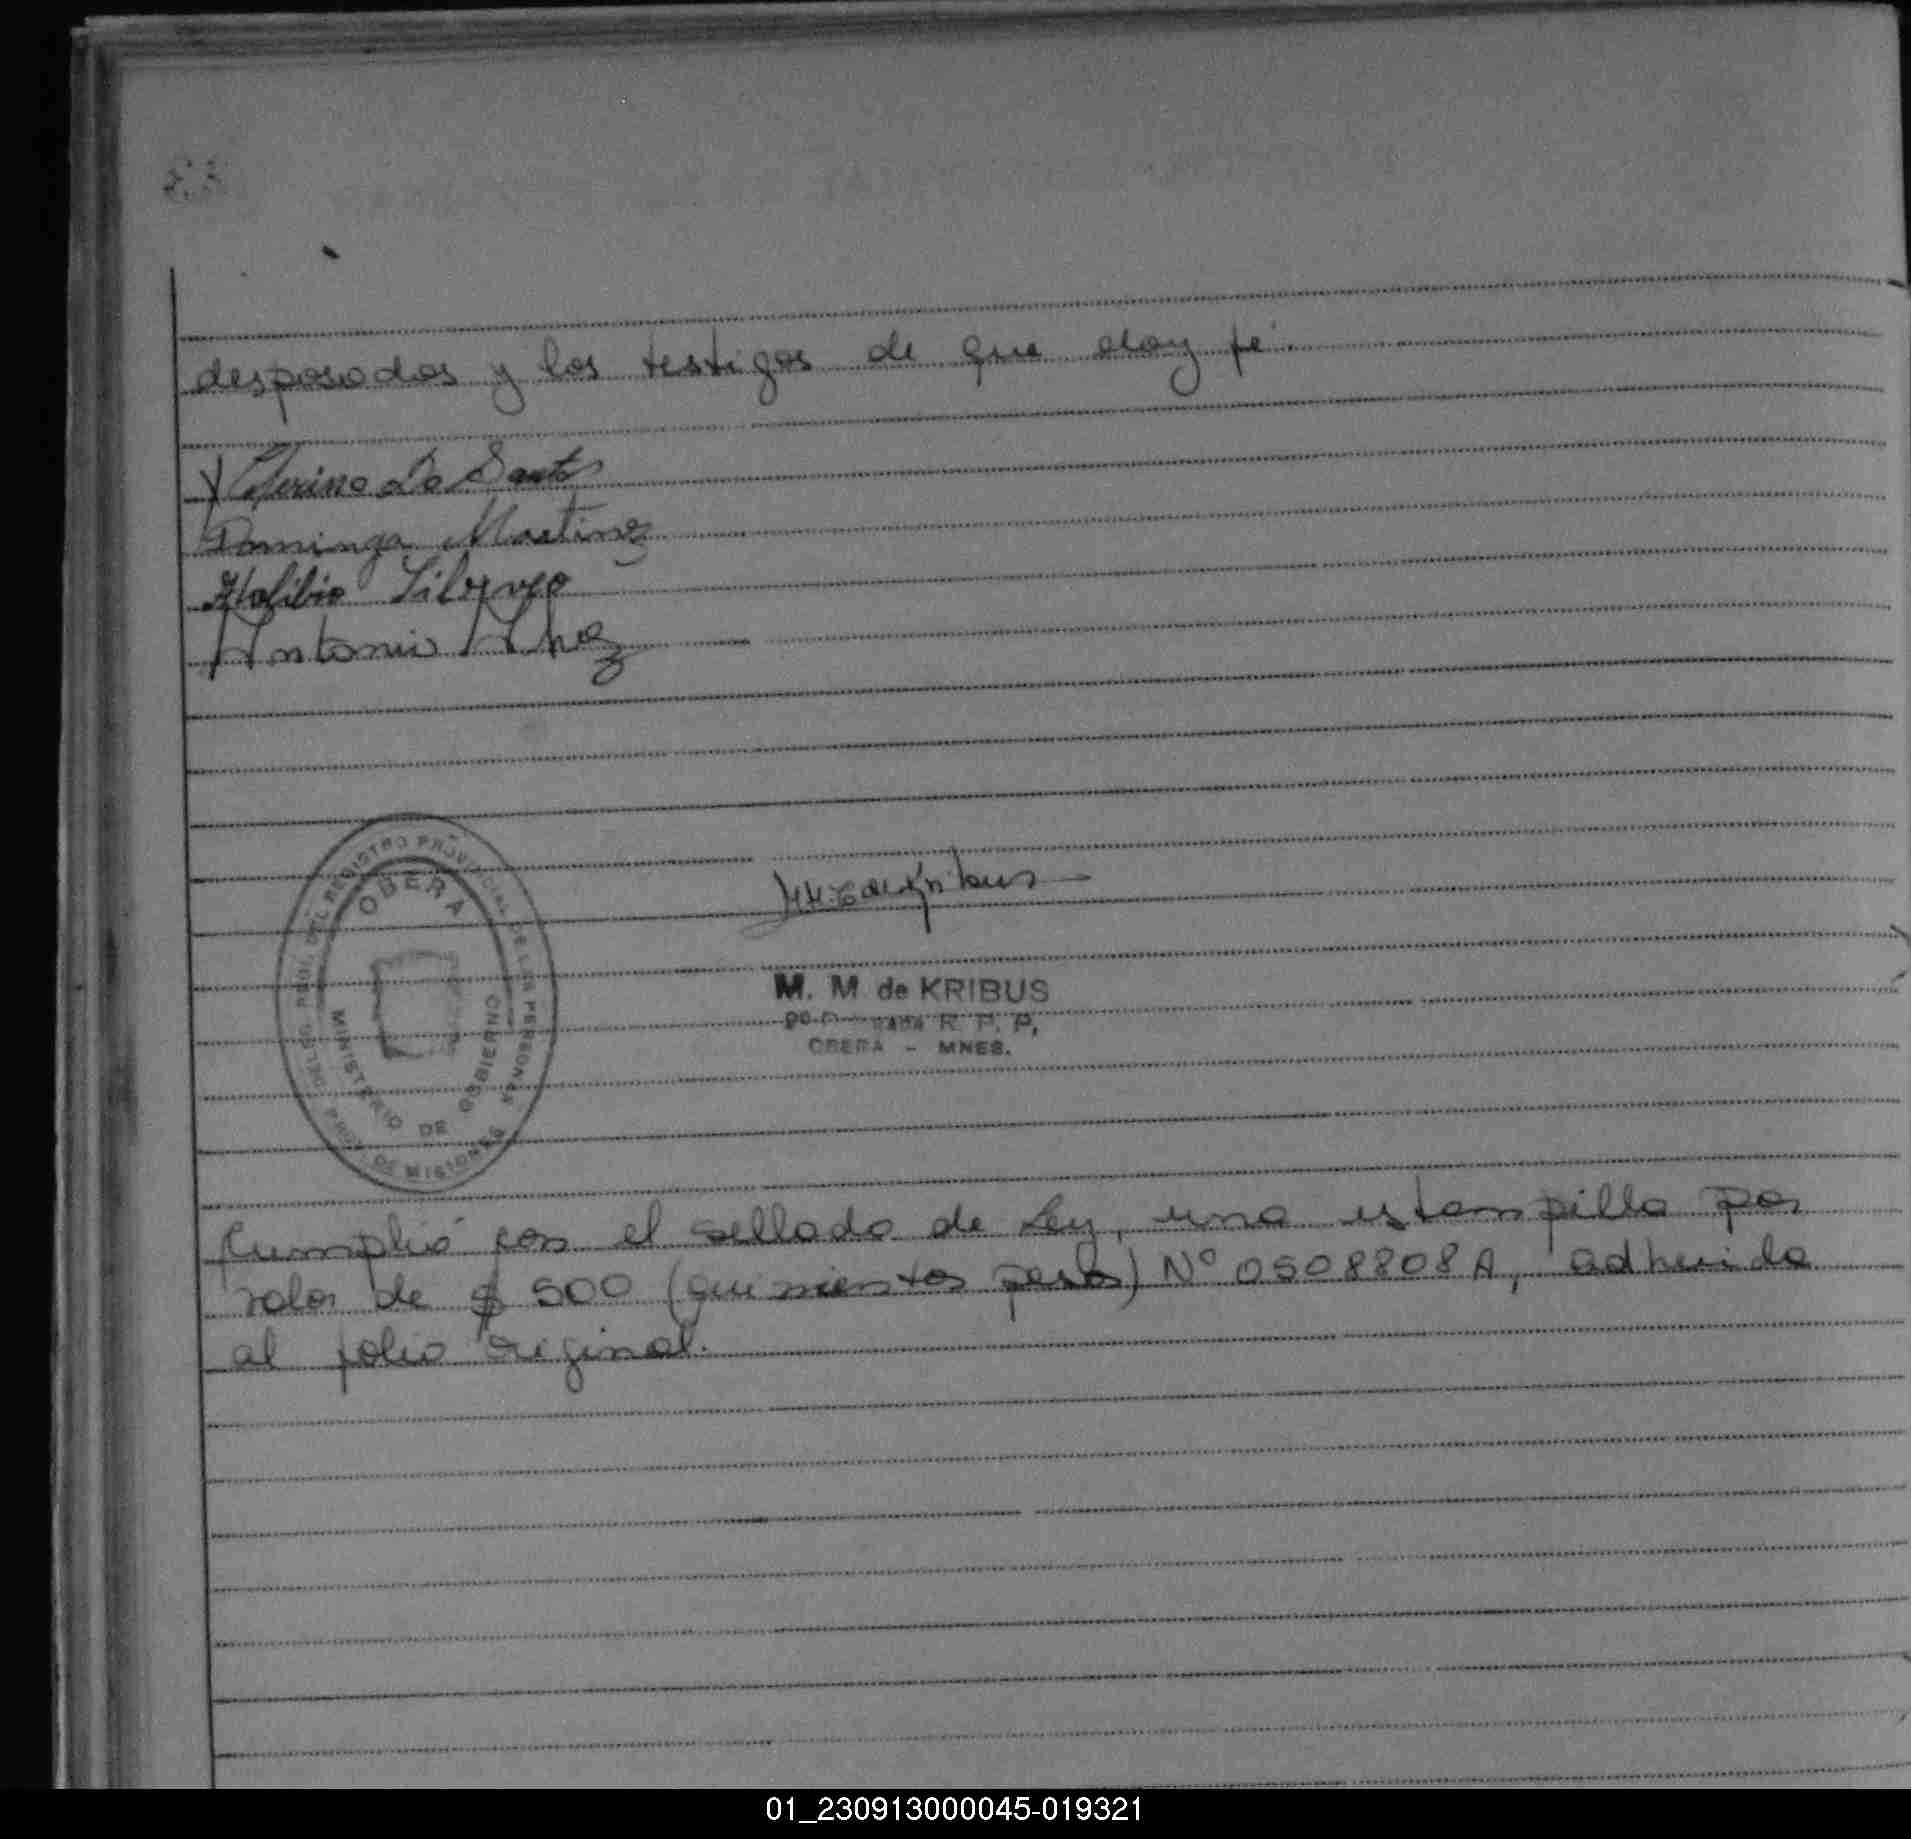 desposados y los testigos de que doy fe.
Ceferino Do Santos
Dominga Martinez
Silvero
Antonio
M. M de KRIBUS
R. P. P.
OBERA - MNES.
DELEG. PCIAL. DEL REGISTRO PROVINCIAL DE LAS PERSONAS
OBERA
MINISTERIO DE GOBIERNO
PROV. DE MISIONES
Cumplió con el sellado de Ley, una estampilla por
valor de $ 500 (quinientos pesos) N° 0508808A, adherida
al folio original.
01_230913000045-019321